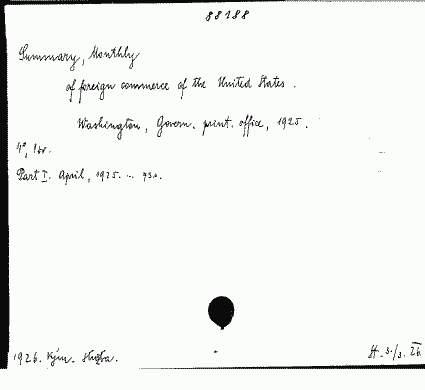 88188
Summary, Monthly
of foreign commerce of the United States.
Washington, Govern. print. office, 1925.
4°, 1 sv.
Part I. April, 1925. ...
1926. Kým. služba.
H. 3./3. 26.